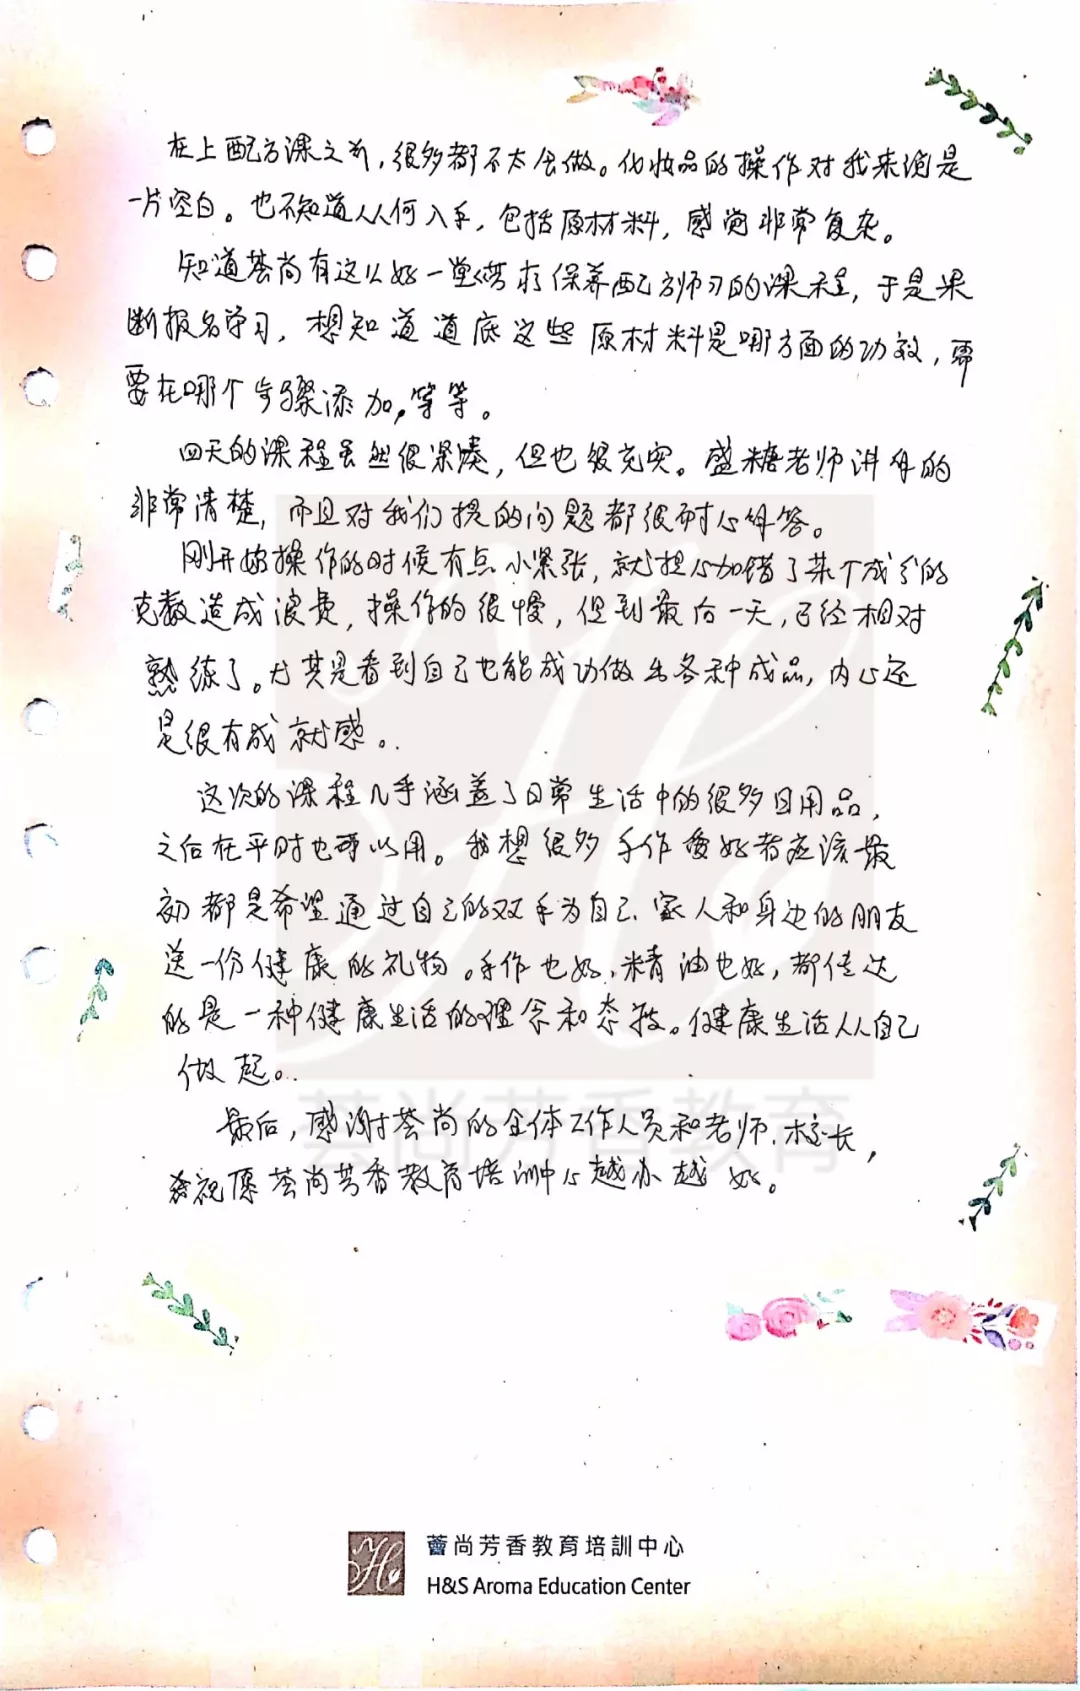 在上配方课之前，很多都不太会做。化妆品的操作对我来说是
一片空白。也不知道从何入手，包括原材料，感觉非常复杂。
知道荟尚有这么好一堂保养配方师习的课程，于是果
断报名学习，想知道道底这些原材料是哪方面的功效，需
要在哪个步骤添加，等等。
四天的课程虽然很紧凑，但也很充实。盛糖老师讲解的
非常清楚，而且对我们提的问题都很耐心解答。
刚开始操作的时候有点小紧张，就担心加错了某个成分的
克数造成浪费，操作的很慢，但到最后一天，已经相对
熟练了。尤其是看到自己也能成功做出各种成品，内心还
是很有成就感。
这次的课程几乎涵盖了日常生活中的很多日用品，
之后在平时也可以用。我想很多手作爱好者应该最
初都是希望通过自己的双手为自己、家人和身边的朋友
送一份健康的礼物。手作也好，精油也好，都传达
的是一种健康生活的理念和态度。健康生活从自己
做起。
最后，感谢荟尚的全体工作人员和老师、校长，
祝愿荟尚芳香教育培训中心越办越好。
荟尚芳香教育
薈尚芳香教育培訓中心
H&S Aroma Education Center